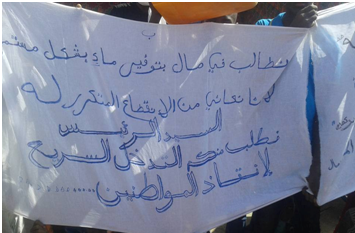 نطالب في مال بتوفير ماء بشكل مستمر
لأننا نعاني من الانقطاع المتكرر له
السيد الرئيس
نطلب منكم التدخل السريع
لإنقاذ المواطنين